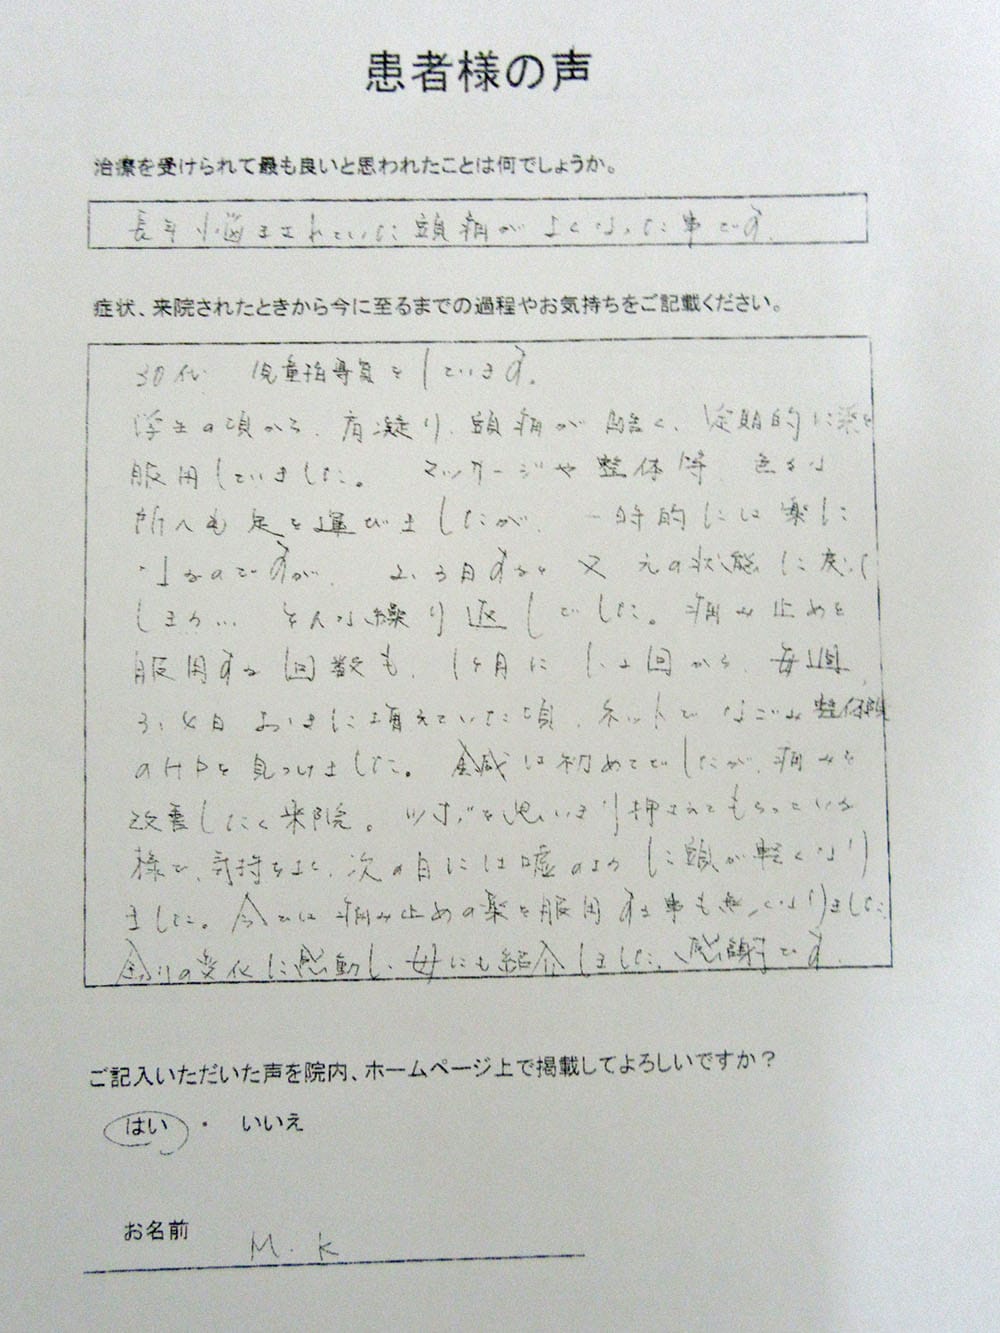 患者様の声
治療を受けられて最も良いと思われたことは何でしょうか。
長年悩まされていた頭痛がよくなった事です。
症状、来院されたときから今に至るまでの過程やお気持ちをご記載ください。
30代 児童指導員をしています。
学生の頃から、肩凝り、頭痛が酷く、定期的に薬を
服用していました。 マッサージや整体等 色々な
所へも足を運びましたが、一時的には楽に
なるのですが、 2、3日すると又 元の状態に戻って
しまう… そんな繰り返しでした。痛み止めを
服用する回数も、1ヶ月に1、2回から、毎週、
3、4日おきに増えていた頃、ネットでなごみ整体院
のHPを見つけました。 鍼は初めてでしたが、痛みを
改善したく来院。ツボを思いきり押されてもらっている
様で、気持ちよく、次の日には嘘のように頭が軽くなり
ました。今では痛み止めの薬を服用する事も無くなりました。
余りの変化に感動し、母にも紹介しました。感謝です。
ご記入いただいた声を院内、ホームページ上で掲載してよろしいですか？
はい ・ いいえ
お名前 M.K